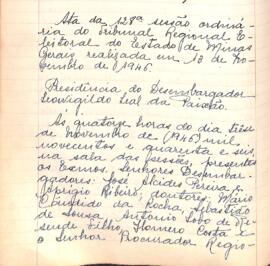 Ata da 128ª sessão ordiná-
ria do Tribunal Regional E-
leitoral do Estado de Minas
Gerais realizada em 13 de no-
vembro de 1946.
Presidência do Desembargador
Leovigildo Leal da Paixão.
Às quatorze horas do dia treze
de novembro de (1946) mil
novecentos e quarenta e seis,
na sala das sessões, presentes
os Exmos. Senhores Desembar-
gadores: José Alcides Pereira e
Eprigio Ribeiro; doutores: Mário
da Rocha, Sebastião
de Sousa, Antonio Lobo de Re-
sende Filho, Homero Costa e
o Senhor Procurador Regio-